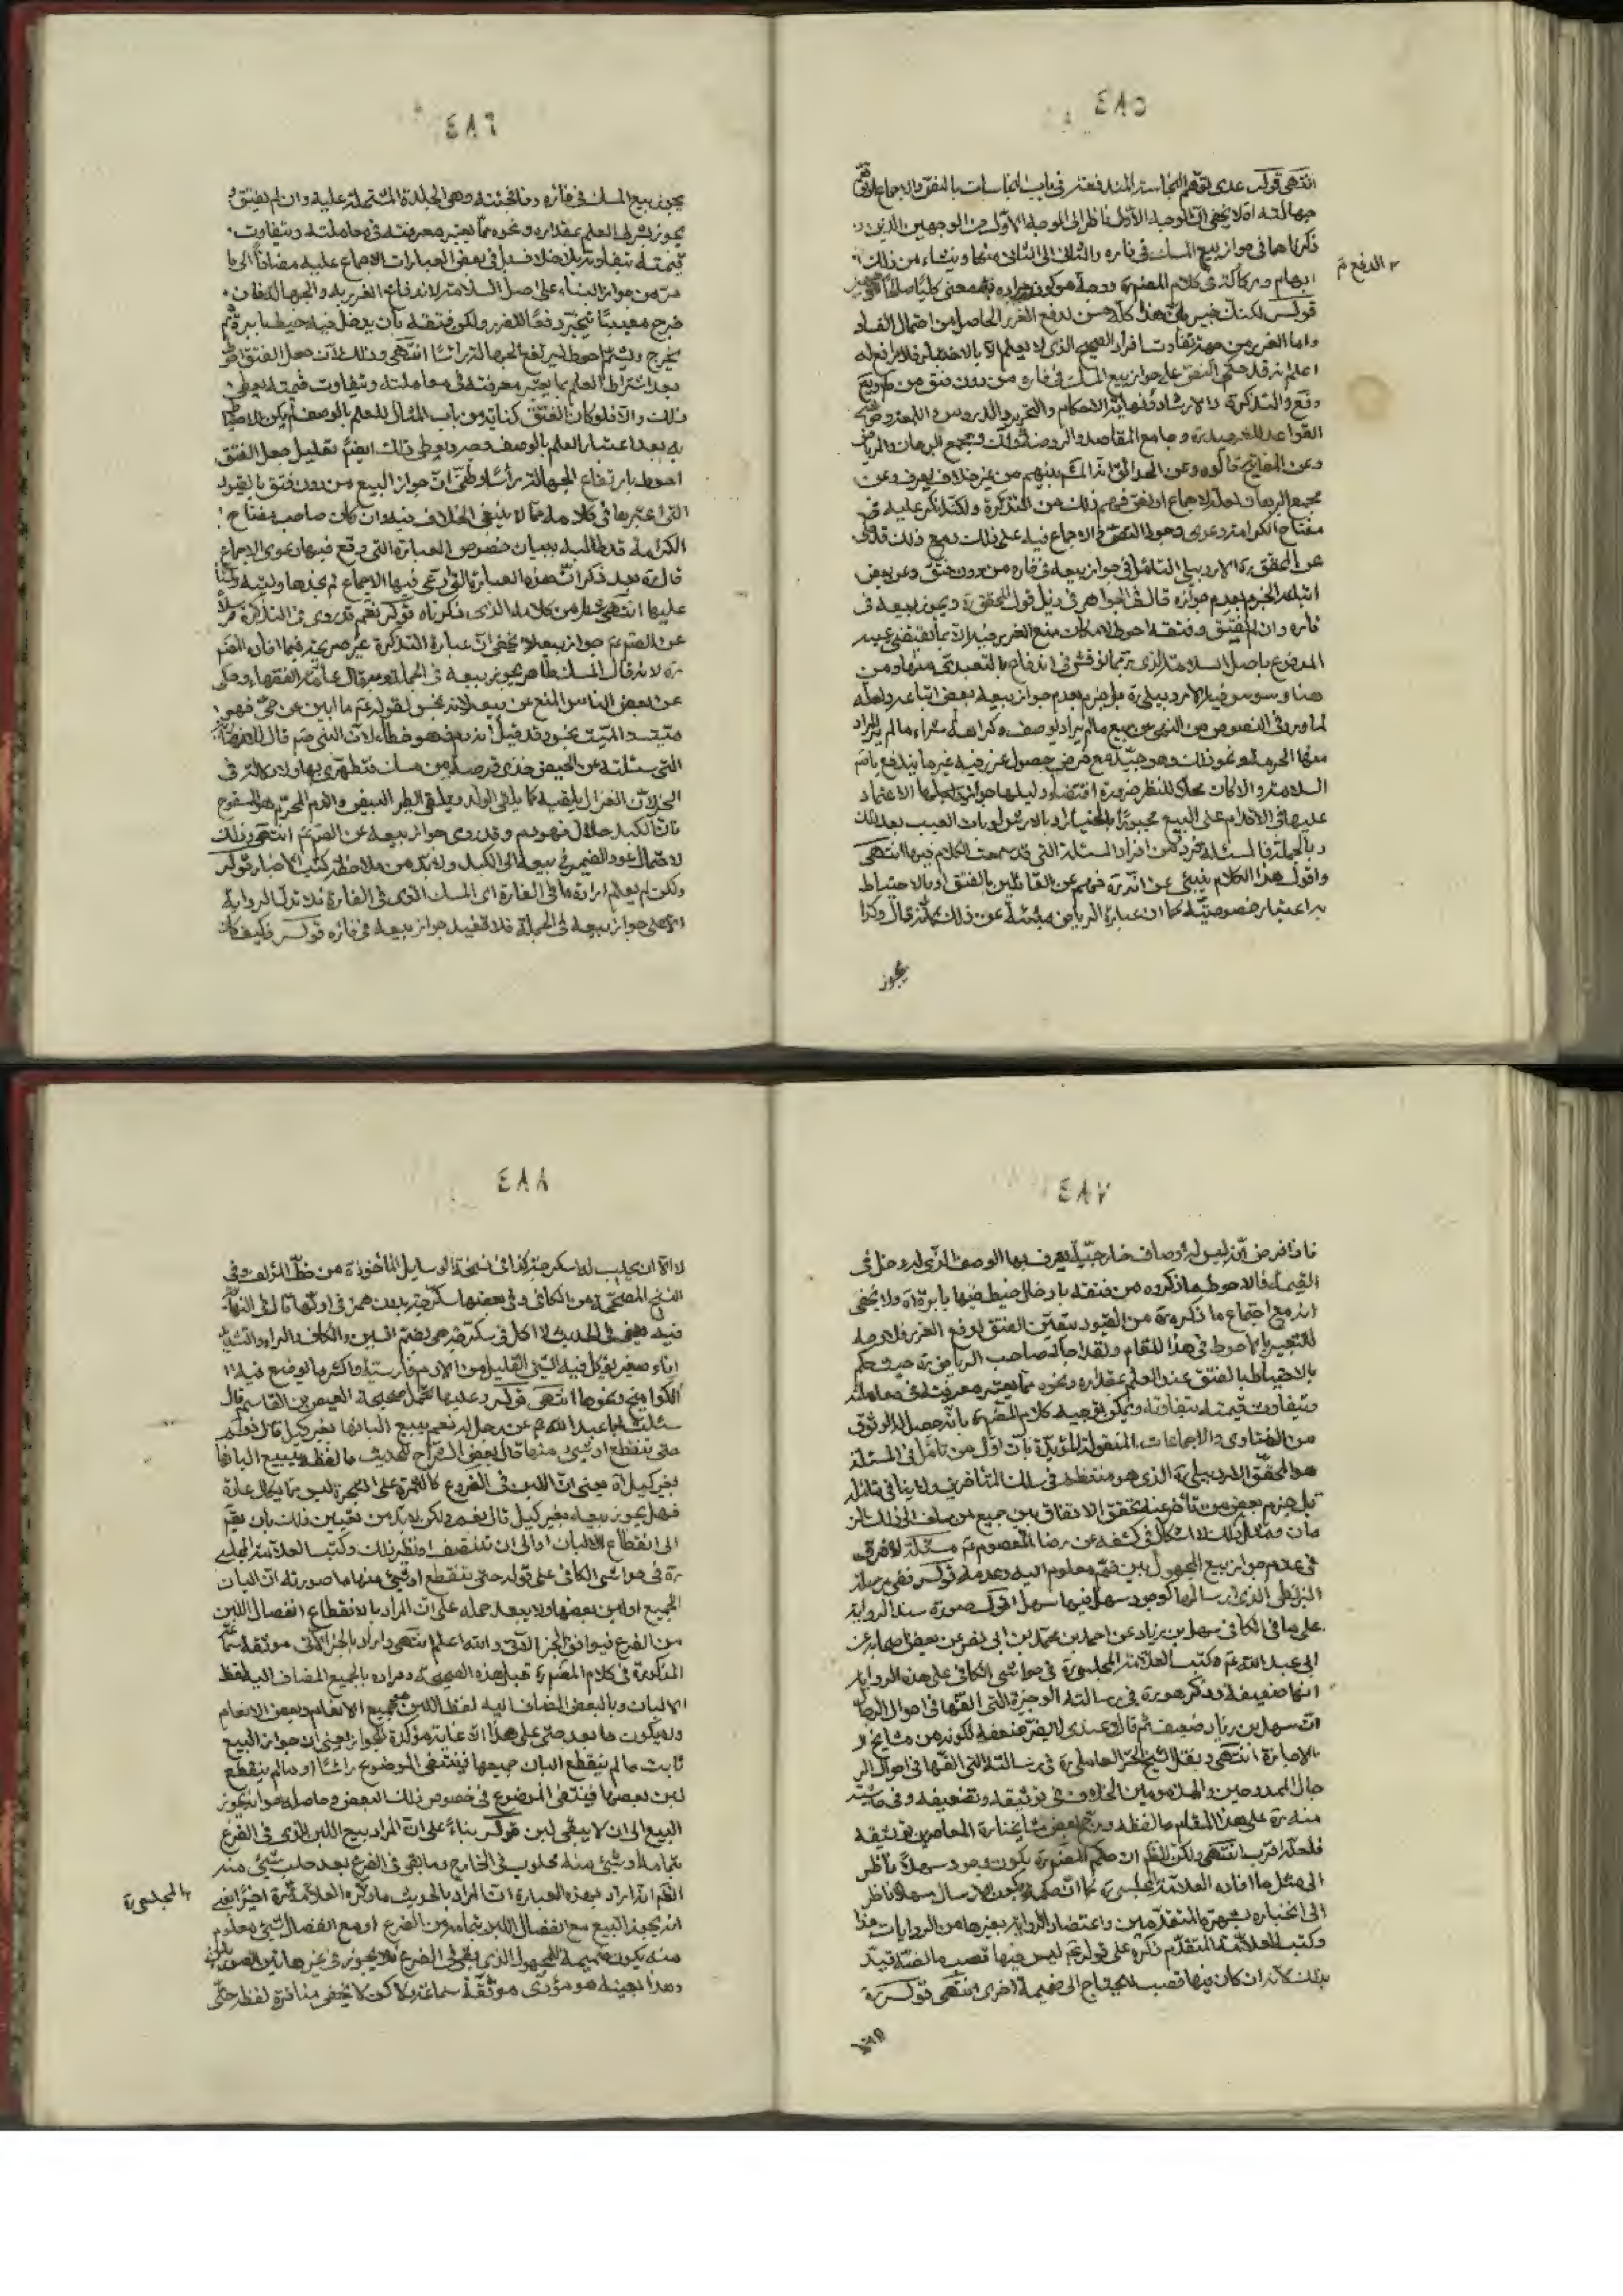 ٤٨٥
انتهى قوله عدى توهم النجاسة المندفعة في باب النجاسات بالنص والاجماع
جهالته اه لا يخفى ان الوجه الأول ناظر الى الوجه الأول من الوجهين الذين
ذكرناها في جواز بيع المسك في فاره والثاني الى الثاني منهما
الدفع
قوله لكنك خبير بان هذا كله حسن لدفع الغرر الحاصل من احتمال الفساد
واما الغرر من جهة تفاوت افراد الصحيح الذى لا يعلم الا بالاختبار فلا رافع له
اعلم انه قد حكى النص على جواز بيع المسك في فاره من دون فتق من
والتذكرة والارشاد ونهاية الاحكام والتحرير والدروس واللمعة
القواعد وجامع المقاصد والروضة ومجمع البرهان والرياض
مفتاح الكرامة دعوى وجود النص والاجماع فيه على ذلك ومع ذلك
عن المحقق الاردبيلي التأمل في جواز بيعه في فاره من دون فتق وعن بعض
اتباعه الجزم بعدم جوازه قال في الجواهر في ذيل قول المحقق ره ويجوز بيعه في
فاره وان لم يفتق وفتقه احوط
هنا وسوس فيه الاردبيلي ره بل جزم بعدم جواز بيعه بعض اتباعه ولعله
لما ورد في النصوص من النهى عن بيع مالم يراد يوصف وكراهة شراء مالم ير
السلامة والا كان محلا للنظر ضرورة اقتضاء دليلها جواز الاعتماد
عليها في الاقدام على البيع مجبورا بالخيار او بالارش لو بان العيب بعد ذلك
وبالجملة فالمسئلة فرد من افراد المسئلة التي قد سمعت الكلام فيها انتهى
واقول هذا الكلام ينبئ عن انه ره فهم عن القائلين بالفتق او بالاحتياط
به اعتبار خصوصيته كما ان عبارة الرياض منبئة عن ذلك لانه قال وكذا
يجوز
٤٨٦
يجوز بيع المسك في فاره ونافجته وهى الجلدة المشتملة عليه وان لم يفتق
يجوز بشرط العلم بمقداره ونحوه مما يعتبر معرفته في معاملته ويتفاوت
قيمته بتفاوته بلا خلاف بل في بعض العبارات الاجماع عليه مضافا الى ما
مر من جواز البناء على اصل السلامة لاندفاع الغرر به والجهالة فان
خرج معيبا تخير دفعا للضرر ولكن فتقه بان يدخل فيه خيط بابرة ثم
يخرج ويشم احوط ليرتفع الجهالة رأسا انتهى وذلك لان جعل الفتق احوط
بعد اشتراط العلم بما يعتبر معرفته في معاملته ويتفاوت قيمته يعطى
ذلك والا فلو كان الفتق كناية من باب المثال للعلم بالوصف لم يكن
به بعد اعتبار العلم بالوصف وصرح ويعطى ذلك ايضا تعليل جعل الفتق
احوط بارتفاع الجهالة رأسا وظني ان جواز البيع من دون فتق بالقيود
التي اعتبرها في كلامه مما لا ينبغى الخلاف فيه وان كان صاحب مفتاح
الكرامة قد طالبه ببيان خصوص العبارة التي وقع فيها دعوى الاجماع
قال ره بعد ذكر ان هذه العبارة التي ادعى فيها الاجماع لم نجدها وليته دلنا
عليها انتهى من كلامه الذى ذكرناه قوله نعم قد روى في التذكرة مرسلا
عن الصم ع جواز بيعه لا يخفى ان عبارة التذكرة غير صريحة فيما افاده المصم
ره لانه قال المسك طاهر يجوز بيعه في الجملة وبه قال عامة الفقهاء وحكى
عن بعض الناس المنع عن بيعه لانه نجس لقوله ع ما ابين عن حي فهو
ميت والميت نجس وقد قيل انه دم وهو خطأ لان النبي ص قال
التي سئلته عن الحيض خذى فرصة من مسك فتطهرى بها ولا دلالة في
الخبر لان الغزال يلقيه كما يلقى الولد ويلقى الطير البيض والدم المحرم هو المسفوح
فان الكبد حلال فهو دم وقد روى جواز بيعه عن الصم ع انتهى وذلك
لاحتمال عود الضمير في بيعه الى الكبد ولا بد من ملاحظة كتب الاخبار قوله
ولكن لم يعلم ارادة ما في الفارة اى المسك الذى في الفارة فلا تدل الرواية
الا على جواز بيعه في الجملة فلا تفيد جواز بيعه في فاره قوله وكيف كان
٤٨٧
فاذا فرض انه ليس له اوصاف خارجية يعرف بها الوصف الذى له دخل في
القيمة فالاحوط ما ذكروه من فتقه بادخال خيط فيها بابرة اه ولا يخفى
انه مع اجتماع ما ذكره ره من القيود يتعين الفتق لدفع الغرر فلا وجه
للتعبير بالاحوط في هذا المقام ولقد اجاد صاحب الرياض ره حيث حكم
بالاحتياط بالفتق عند العلم بمقداره ونحوه مما يعتبر معرفته في معاملته
ويتفاوت قيمته بتفاوته ويمكن توجيه كلام المصم ره بانه حصل له الوثوق
من الفتاوى والاجماعات المنقولة المؤيدة بان اول من تأمل في المسئلة
هو المحقق الاردبيلي ره الذى هو منتظم في سلك المتأخرين ولا ينافي
بل جزم بعض من تأخر عنه تحقق الاتفاق بين جميع من سلف الى ذلك
مان ومثل ذلك لا اشكال في كشفه عن رضا المعصوم ع مسئلة لا فرق
في عدم جواز بيع المجهول بين ضم معلوم اليه وعدمه قوله ففى مرسلة
البزنطى التي ارسالها كوجود سهل فيها سهل اقول صورة سند الرواية
على ما في الكافي سهل بن زياد عن احمد بن محمد بن ابي نصر عن بعض اصحابه عن
ابى عبد الله ع وكتب العلامة المجلسى ره في حواشى الكافي على هذه الرواية
انها ضعيفة وذكر هو ره في رسالته الوجيزة التي الفها في احوال الرجال
ان سهل بن زياد ضعيف ثم قال وعندى لا يضر ضعفه لكونه من مشايخ
الاجازة انتهى ونقل الشيخ الحر العاملى ره في رسالته التي الفها في احوال
حال الممدوحين والمذمومين الخلاف في توثيقه وتضعيفه وفي حاشية
منه ره على هذا المقام ما لفظه ورجح بعض مشايخنا المعاصرين توثيقه
فلعله اقرب انتهى ولكن الظ ان حكم المصم ره بكون وجود سهل سهلا ناظر
الى مثل ما افاده العلامة المجلسى ره كما ان حكمه بكون الارسال سهلا ناظر
الى انجباره بشهرة المتقدمين واعتضاد الرواية بغيرها من الروايات هذا
وكتب العلامة المتقدم ذكره على قوله ع ليس فيها قصب ما لفظه قيد
بذلك لانه ان كان فيها قصب لا يحتاج الى ضميمة اخرى انتهى قوله ره
٤٨٨
لا الا ان يحلب لك اسكرجة كذا في نسخة الوسايل المأخوذة من خط المؤلف وفي
النسخ المصححة من الكافي وفي بعضها سكرجة بدون همز في اولها قال في النهاية
فيه في الحديث لا اكل في سكرجة هي بضم السين والكاف والراء والتشديد
اناء صغير يؤكل فيه الشئ القليل من الادم فارسية واكثر ما يوضع فيه
الكواميخ ونحوها انتهى قوله وعليها تحمل صحيحة العيص بن القاسم قال
سئلت ابا عبد الله ع عن رجل له نعم يبيع البانها بغير كيل قال نعم
حتى ينقطع او شئ منها قال بعض الشراح للحديث ما لفظه يبيع البانها
بغير كيل اه يعني ان اللبن في الضروع كالثمرة على الشجرة ليس مما يكال عادة
فهل يجوز بيعه بغير كيل قال نعم ولكن لا بد من تعيين ذلك بان يقيد
الى انقطاع الالبان او الى ان تنتصف او نظير ذلك وكتب العلامة المجلسي
ره في حواشى الكافي على قوله حتى ينقطع او شئ منها ما صورته اى البان
الجميع او لبن بعضها ولا يبعد حمله على ان المراد بالانقطاع انفصال اللبن
من الضرع فيوافق الخبر الاتى والله اعلم انتهى واراد بالخبر الاتى موثقة سماعة
المذكورة في كلام المصم ره قبل هذه الصحيحة ومراده بالجميع المضاف اليه لفظ
الالبان وبالبعض المضاف اليه لفظ اللبن جميع الانعام وبعض الانعام
ويكون ما بعد حتى على هذا غاية مؤكدة للجواز يعني ان جواز البيع
ثابت ما لم ينقطع البان جميعها فينتفى الموضوع راسا او مالم ينقطع
لبن بعضها فينتفى الموضوع في خصوص ذلك البعض وحاصله جواز
البيع الى ان لا يبقى لبن قوله بناء على ان المراد بيع اللبن الذى في الضرع
بتمامه او شئ منه محلوب في الخارج وما بقى في الضرع بعد حلب شئ منه
الظم انه اراد بهذه العبارة ان المراد بالحديث ما ذكره العلامة ره اخيرا يعنى
المجلسى ره
انه يجوز البيع مع انفصال اللبن بتمامه من الضرع او مع انفصال شئ معلوم
منه يكون ضميمة للمجهول الذى بقى في الضرع ولا يجوز في غير هاتين الصورتين
وهذا بعينه هو مؤدى موثقة سماعة لكن لا يخفى منافرة لفظ حتى